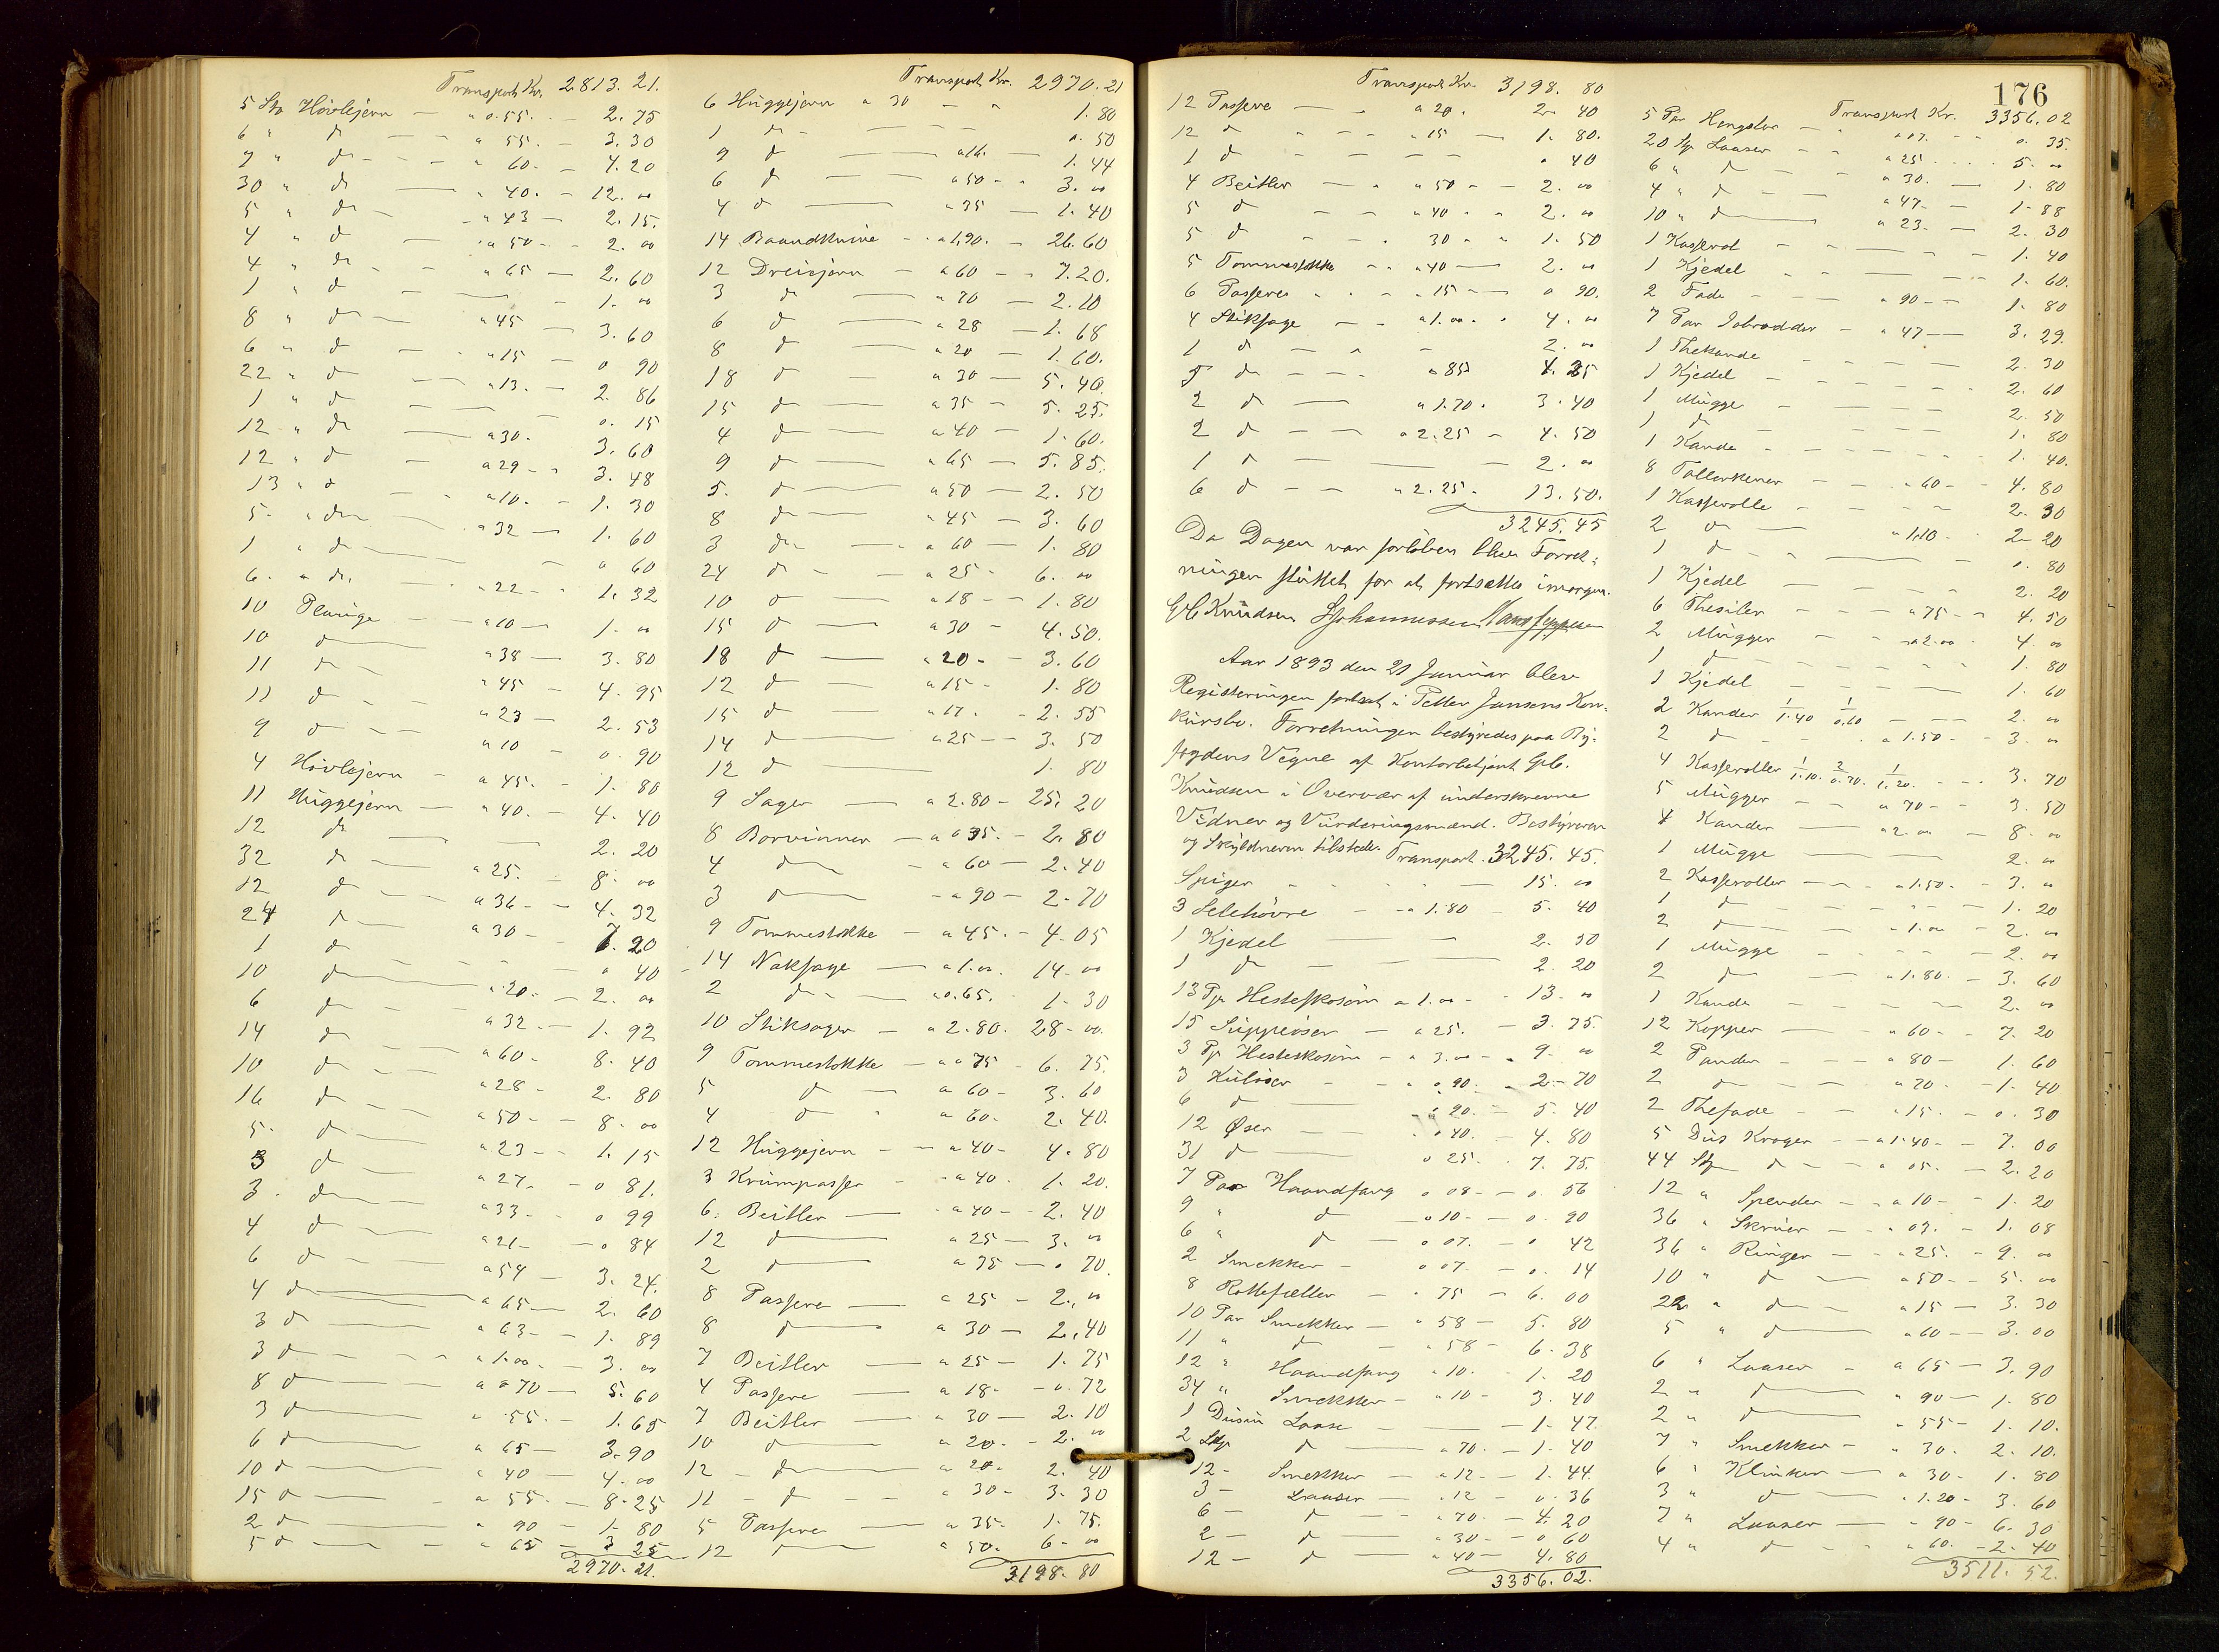 Transport Kr. 2813. 21.
5 Stk Høvlejern — a 0.55. — 2. 75
6 " do — — a 55. — 3. 30
7 " do - - - a 60 - - 4. 20
30 " do — " 40. — 12. "
5 " do - - " 43 — 2. 15.
4 " do — " a 50 - - 2. "
4 " do - - " 65 — 2. 60
1 " do — — 1. "
8 " do — " 45 — 3. 60
6 " do — - " 15 — 0 90
22 " do — " 13. — 2. 86
1 " do — — 0. 15
12 " do — a 30. 3. 60
12 " do — a 29 - " 3. 48
13 " do - - a 10. - 1. 30
5 - " do — a 32 — 1. 60
1 " do — — " 60
6. " do. — " 22 - " 1. 32
10 Plauge — " 10 — 1. "
10 do — " 38 — 3. 80
11 do - " 45 - 4. 95
11 do - - " 23 — 2. 53
9 do - - " 10 - 0. 90
4 Høvlejern - a 45. - 1. 80
11 Huggejern — " 40. - 4. 40
12 do — — 2. 20
32 do — a 25. - 8. "
12 do - - a 36 - - 4. 32
24 do — a 30 - - 7. 20
1 do - - - " 40
10 do — a 20. — 2. "
6 do - - a 32 — 1. 92
14 do — a 60 - 8. 40
10 do - - a 28 - 2. 80
16 do - - a 50 - - 8. "
5 - do — a 23 - " 1. 15
3 do — a 27. - 0 81.
3. do — a 33 - - 0 99
4 do — a 21 - - 0 84
6 do — a 54 — 3. 24.
4 do — a 65 — 2. 60
3 do — a 63 — 1. 89
3 do — - - " 1.00. — 3. "
8 do — a 0 70 — 5. 60
3 do — " .55. — 1. 65
6 do — a 65 — 3. 90
10 do — " 40 — 4. "
15 do — - a 55. — 8. 25
2 do — " 90 — 1. 80
5 do — - " 65 — 3 25
2970. 21.
Transport Kr. 2970. 21
6 Huggejern a 30 — " 1. 80
1 do - — — 0. 50
9 do — a 16. — 1. 44
6 do — — a 50 - - 3. "
4 do — " 35 — 1. 40
14 Baandknive - - a 1,90. — 26. 60
12 Dreisjern — a 60 - - 7. 20.
3 do — " 70 — 2. 10
6 do — a 28 — 1. 68
8 do — a 20 — 1. 60.
18 do — a 30 — 5. 40.
15 do — a 35 — 5. 25.
4 do — a 40 — 1. 60.
9 do — " 65 — 5. 85.
5. do — a 50 — 2. 50
8 do — " 45 — 3. 60
3 do — - " 60 — 1. 80
24 do - - a 25 - 6. "
10 do — a 18 - - 1. 80
15 do — a 30 - 4. 50.
18 do — " 20 - - 3. 60
12 do — a 15 - 1. 80
15 do — " 17. - 2. 55
14 do — a 25 - - 3. 50
12 do — 1. 80
9 Sager — a 2. 80 - 25. 20
8 Borvinner — a 0 35. - 2. 80
4 do — a 60 — 2. 40
3 do — - a 90 — 2. 70
9 Tommestokke — a 45. - 4. 05
14 Naksage — a 1. 00. 14. "
2 do - — a 0. 65. - 1. 30
10 Stiksager — a 2. 80. 28. 00.
9 Tommestokke — a 0 75 - 6. 75.
5 do — a 60 - 3. 60
4 do " a 60. 2. 40.
12 Huggejern — - a 40 - 4. 80
3 Krumpasser - - a 40. 1. 20.
6. Beitler — - a 40 - - 2. 40
12 do — a 25 — 3. "
2 do — a 35 — 0 70
8 Passere — a 25 - 2. "
8 do — a 30 — 2. 40
7 Beitler — a 25 — 1. 75
4 Passere — a 18. - 0. 72
7 Beitler — a 30 — 2. 10
10 do — a 20. - 2. "
12 - do — a 20. 2. 40
11 - do - - a 30 - 3. 30
5 Passere — a 35 - 1. 75.
12 do — a 50. 6 - "
3198. 80
Transport Kr. 3198. 80
12 Passere — - a 20. 2 - 40
12 do - - - " 15 — 1. 80.
1 do - - - - 0 40
4 Beitler — - " 50 - - 2. "
5 do - - " 40 - - 2. "
5 do - - . 30 - " 1. 50
5 Tommestokke - - " 40 — 2. "
6 Passere - - - " 15 — 0 90.
4 Stiksage — - a 1. 00. - 4. "
1 do - - - 2. "
5 do - - - a 85 4. 25
2 do — a 1. 70. 3. 40
2 do — - a 2. 25 - 4. 50
1 do — — 2. "
6 do — - " 2. 25. 13. 50.
3245. 45
Da Dagen var forløben blev Forret-
ningen sluttet for at fortsættes imorgen.
G C Knudsen S Johannessen Hans Jeppesen
Aar 1893 den 21 Januar blev
Registeringen fortsat i Petter Jansens Kon-
kursbo. Forretningen bestyredes paa By-
fogdens Vegne af Kontorbetjent G C.
Knudsen i Overvær af underskrevne
Vidner og Vurderingsmænd. Bestyreren
og Skyldneren tilstede. Transport. 3245. 45.
Spiger - - - — 15. "
3 Selehøvre — - a 1. 80 - 5. 40
1 Kjedel — — 2. 50
1 do — — 2. 20
13 Pr Hesteskosøm a 1. 00 - - 13. "
15 Suppeøser — a 25. - 3. 75.
3 Pr Hesteskosøm - a 3. 00 - " 9. "
3 Kuløser - - " 0 90. - 2. 70
6 do — - " 90. - 5. 40
12 Øser — - 0 40. - 4. 80
31 do — 0 25. . 7. 75.
7 Par Haandfang 0 08 - - 0. 56
9 " do — 0 10 - - 0. 90
6 " do — 0 07. - 0 42
2 Smekker - 0 07 - 0. 14
8 Rottefælder — " 75 — 6. 00
10 Par Smekker — " 58 — 5. 80
11 " do — " 58 - 6. 38
12 " Haandfang " 10. - 1. 20
34 " Smekker — " 10 - 3. 40
1 Dusin Laase — — 1. 47.
2 Stk do — " 70. — 1. 40
12 - Smekker — " 12 — 1. 44.
3 - Laaser — " 12 - 0. 36
6 - do — - " 70. — 4. 20
2 - do — " 30 - - 0 60
12 - do — " 40 — 4. 80
3356. 02.
176
Transport Kr. 3356. 02
5 Par Hengsler - - " 07. - 0. 35.
20 Stk Laaser - - " 25. . . . 5. "
6 " do - - " 30. — 1. 80
4 " do - - " 47 - — 1. 88
10 " do — " 23. — 2. 30
1 Kasserol - - — 1. 40
1 Kjedel - - — 1. 60.
2 Fade - - - " 90 - - 1. 80
7 Par Isbrodder — " 47 — 3. 29.
1 Thekande — 2. 30
1 Kjedel - - - 2. 60
1 Mugge - - - 2. 50
1 do - - 1. 80
1 Kande - - - 1. 40.
8 Tallerkener - - " 60 - - 4. 80
1 Kasserolle - - - 2. 30
2 do — " 1.10 - - 2 - 20
1 do - - — 1. 80
1 Kjedel — — 2. 20
6 Thesiler - - - " 75 - - 4. 50
2 Mugger — - a 2. 00 - 4. "
1 do - - - 1. 80
1 Kjedel - - - 1. 60
2 Kander 1/1.40 1/0.60 - - - 2. "
2 do - - - a 1. 50 - - 3. "
4 Kasseroller 1/1.10. 2/0.70. 1/1.20. - - - 3. 70
5 Mugger — - " 70 - - 3. 50
4 Kander — " 2. 00 - 8. "
1 Mugge — — 2. "
2 Kasseroller — - " 1. 50. - 3. "
1 do - - - - 1. 20
2 do — - " 1. 00 - 2. "
1 Mugge - - - 2. "
2 do — - " 1. 80. - 3. 60
1 Kande - - - 2. "
12 Kopper — - " 60 - - 7. 20
2 Pander - - - " 80 - 1. 60
2 do - - " 70 - - 1. 40
2 Thefade - - " 15. - 0. 30
5 Dus Kroger - - a 1. 40 - - 7. 00
44 Stk do - - " 05. - 2. 20
12 " Spender — - a 10 - - 1. 20
36 " Skruer — - " 03. - 1. 08
36 " Ringer - - " 25. - 9. "
10 " do — " 50 - - 5. "
22 " do - - " 15 — 3. 30
5 " do — " 60 — 3. 00
6 " Laaser - a 65 — 3. 90
2 " do — " 90 — 1. 80
2 " do — " 55 - 1. 10.
7 " Smekker — " 30. 2. 10.
6 " Klinker — a 30 - 1. 80
3 " do — " 1. 20 - 3. 60
7 " Laaser — " 90 - 6. 30
4 " do - - " 60. - 2. 40
3511. 52.